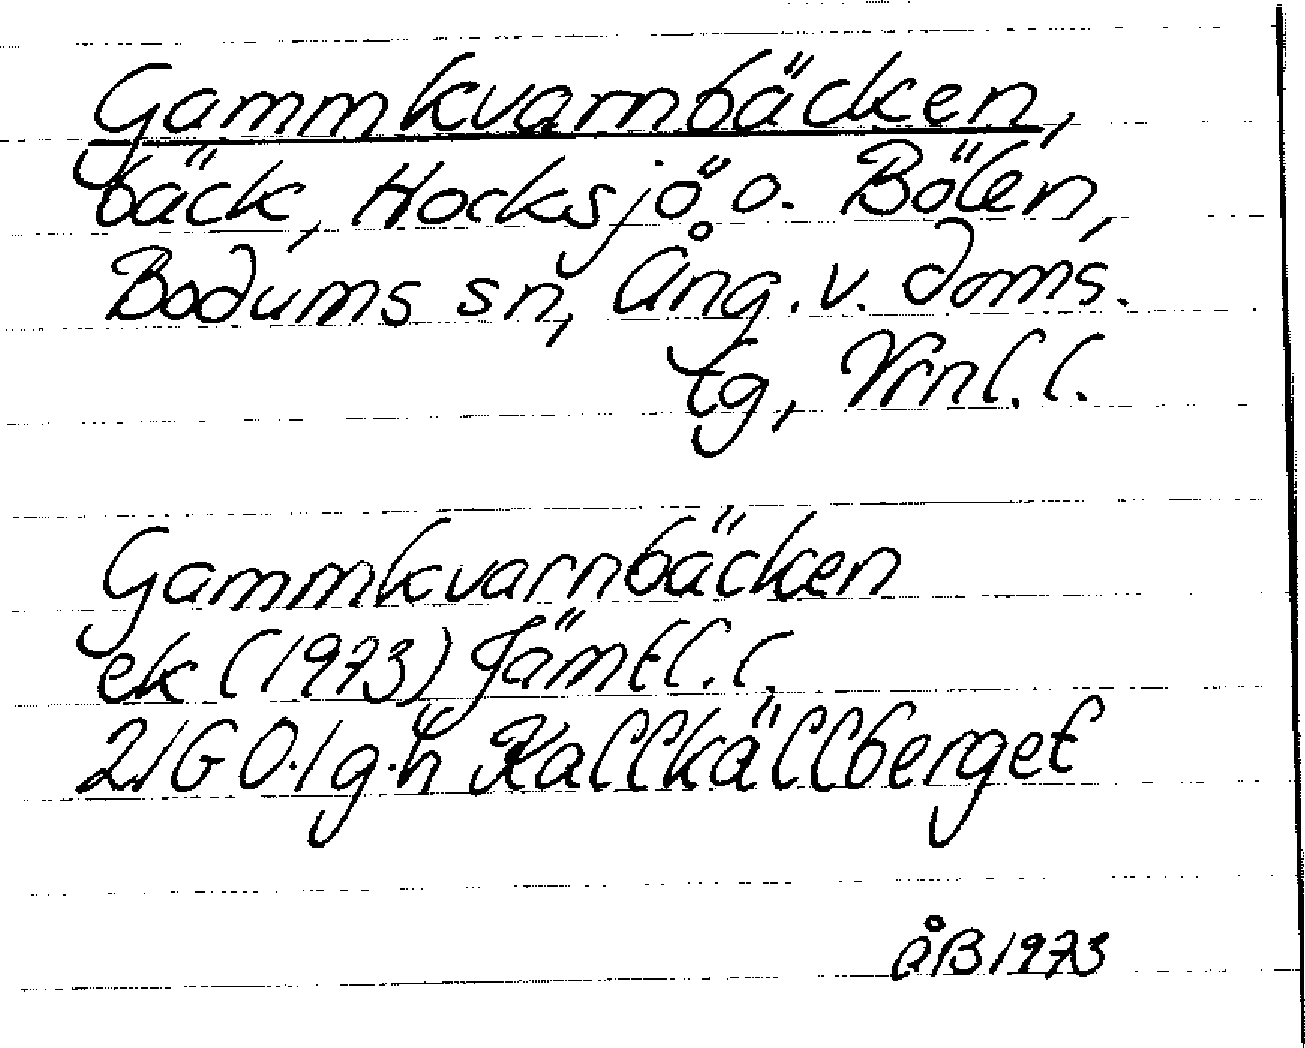 Gammkvarnbäcken,
bäck, Hocksjö o. Bölen,
Bodums sn, Ång. v. doms.
tg, Vrnl. l.
Gammkvarnbäcken
ek (1973) Jämtl. l.
21G 0-1 g-h Kallkällberget
åB 1973